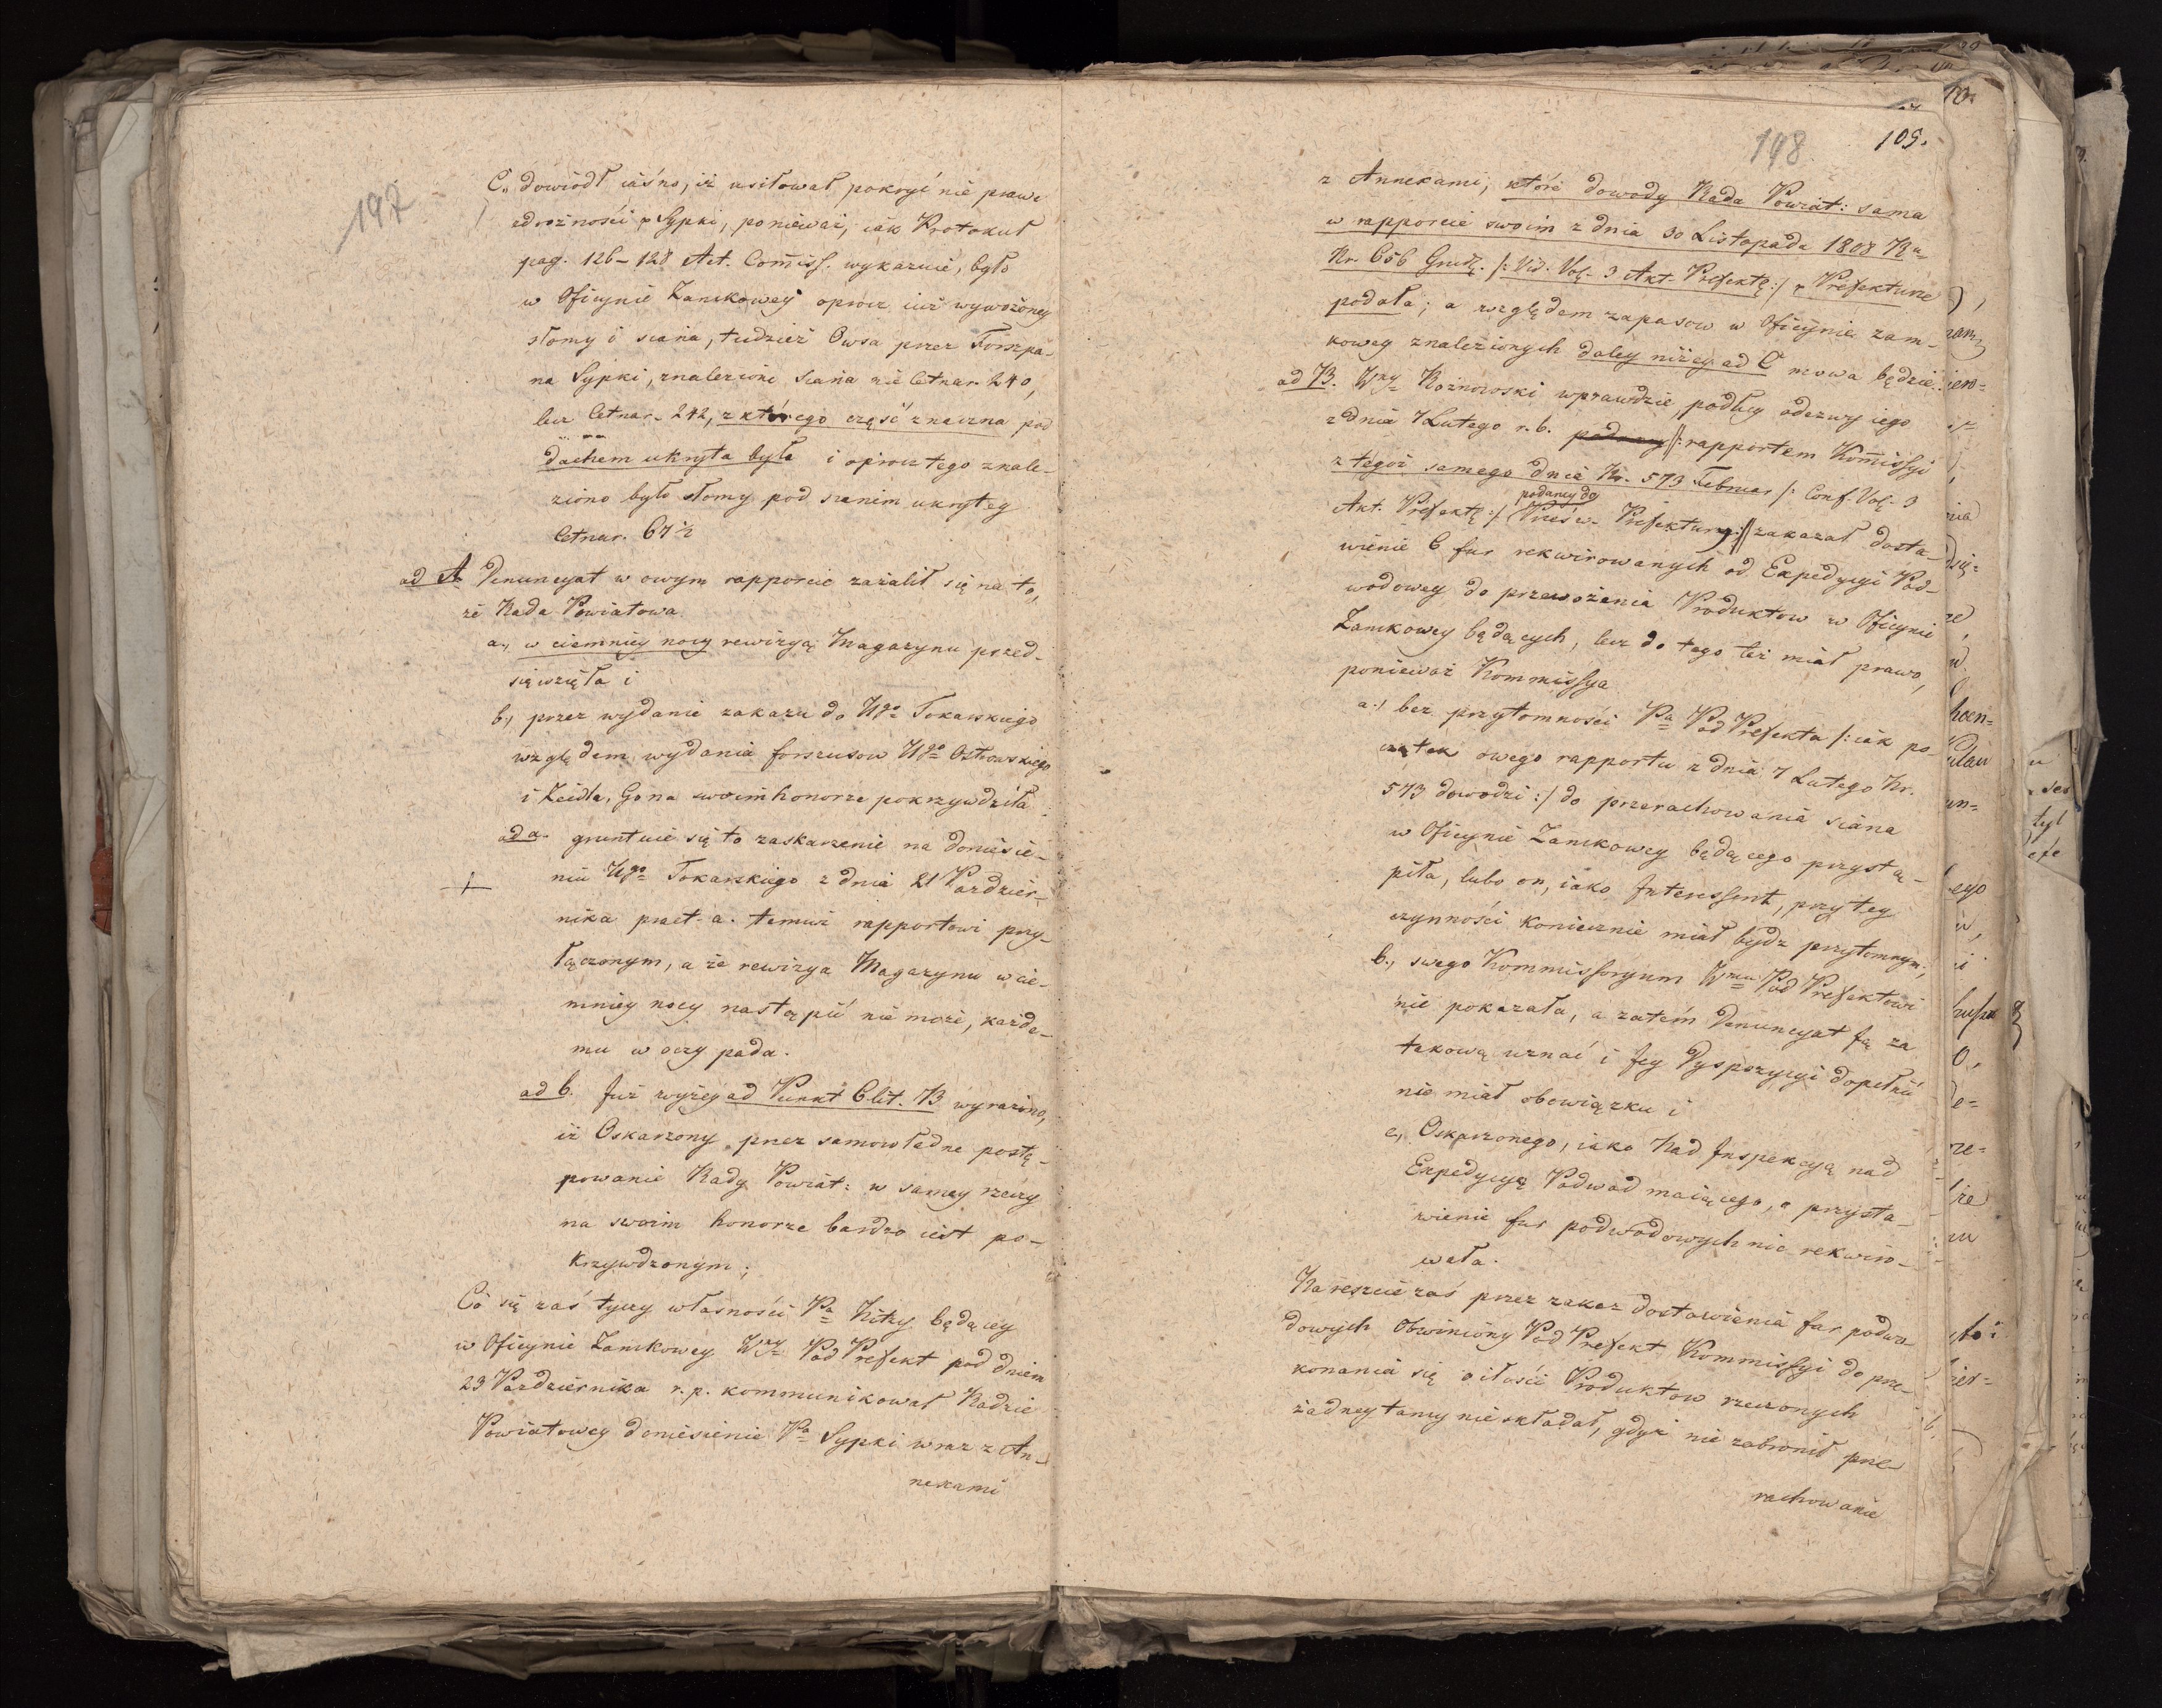 197
C.. dowiodł iáśno, iż usiłował pokryć nie prawe
zdrożności P Sypki, ponieważ, iák Protokuł
pag. 126–128 Act. Comiss. wykazuie, było
w Oficynie Zamkowey oprocz iuż wywożoney
słomy i siana, tudzież Owsa przez Forszpa-
na Sypki, znalezione siana nie Cetnar. 240,
lecz Cetnar. 242, z którego część znaczna pod
dachem ukryta była i oprocz tego znale-
ziono było słomy pod sianem ukrytey
Cetnar. 67½
ad A Denuncyat w owym rapporcie zażalił się na to,
że Rada Powiatowa
a., w ciemney nocy rewizyą Magazynu przed-
sięwzięła i
b., przez wydanie zakazu do Wgo Tokarskiego
względem wydania forszusow Wgo Ostrowskiego
i Zeidla, Go na swoim honorze pokrzywdziła
ad a. gruntuie się to zaskarzenie na doniesie-
niu Wgo Tokarskiego z dnia 21 Paździer-
nika praet. a. temuż rapportowi przy-
łączonym, a że rewizya Magazynu w cie-
mney nocy nastąpić nie może, każde-
mu w oczy pada.
ad b. Już wyżey ad Punkt 6 lit. B wyrażono,
iż Oskarzony przez samowładne postę-
powanie Rady Powiat: w samey rzeczy
na swoim honorze bardzo iest po-
krzywdzonym;
Co się zaś tyczy własności Pa Kitzy będącey
w Oficynie Zamkowey Wny Pod Prefekt pod dniem
23 Października r. p. kommunikował Radzie
Powiatowey doniesienie Pa Sypki wraz z An-
nexami
148 105.
z Annexami, które dowody Rada Powiat: sama
w rapporcie swoim z dnia 30 Listopada 1808 Ru
Nr. 656 Grudz. /: Vid. Vol. 3 Akt. Prefekt :/ Prefekturze
podała; a względem zapasow w Oficynie zam-
kowey znalezionych daley niżey ad C mowa będzie.
ad B. Wny Rożnowski wprawdzie, podług odezwy iego
z dnia 7 Lutego r. b. podaney //: rapportem Komissyi
z tegoż samego dnia Nr. 573 Februar /: Conf. Vol. 3
podaney do
Akt. Prefekt :/ Prześw. Prefektury :// zakazał dosta-
wienie 6 fur rekwirowanych od Expedycyi Pod-
wodowey do przewożenia Produktow w Oficynie
Zamkowey będących, lecz do tego też miał prawo,
ponieważ Kommissya
a., bez przytomności Pa Pod Prefekta /: iák po-
czątek owego rapportu z dnia 7 Lutego Nr.
573 dowodzi :/ do przerachowania siana
w Oficynie Zamkowey będącego przystą-
piła, lubo on, iako Interessent, przy tey
czynności koniecznie miał bydz przytomnym;
b., swego Kommissoryum Wmu Pod Prefektowi
nie pokazała, a zatém Denuncyat Ją za
takową uznać i Jey Dyspozycyi dopełnić
nie miał obowiązku i
c., Oskarzonego, iako Nad Inspekcyą nad
Expedycyą Podwod maiącego, o przysta-
wienie fur podwodowych nie rekwiro-
wała.
Nareszcie zaś przez zakaz dostawienia fur podwo-
dowych Obwiniony Pod Prefekt Kommissyi do prze-
konania się o ilości Produktow rzeczonych
żadney tamy nie składał, gdyż nie zabronił prze-
rachowanie